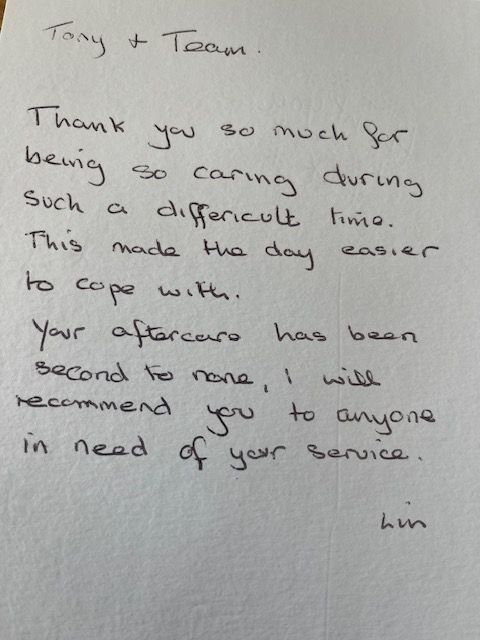 Tony + Team.
Thank you so much for
being so caring during
such a differicult time.
This made the day easier
to cope with.
Your aftercare has been
second to none, i will
recommend you to anyone
in need of your service.
Lin